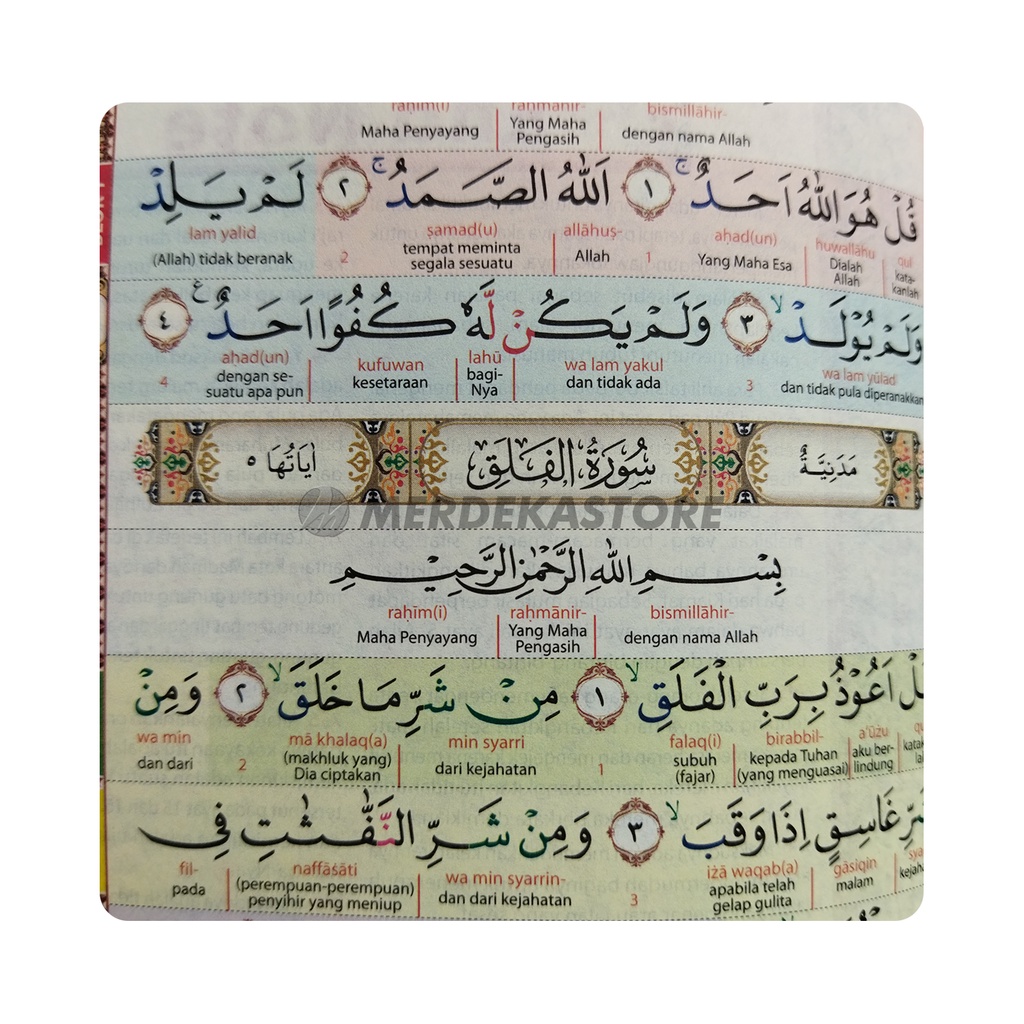 bismillāhir- raḥmānir- raḥīm(i)
dengan nama Allah Yang Maha Pengasih Maha Penyayang
قُلْ هُوَ اللّٰهُ اَحَدٌۚ ١ اَللّٰهُ الصَّمَدُۚ ٢ لَمْ يَلِدْ
qul huwallāhu aḥad(un) 1 allāhuṣ- ṣamad(u) 2 lam yalid
kata-kanlah Dialah Allah Yang Maha Esa Allah tempat meminta segala sesuatu (Allah) tidak beranak
وَلَمْ يُوْلَدْۙ ٣ وَلَمْ يَكُنْ لَّهٗ كُفُوًا اَحَدٌ ࣖ ٤
wa lam yūlad 3 wa lam yakul lahū kufuwan aḥad(un) 4
dan tidak pula diperanakkan dan tidak ada bagi-Nya kesetaraan dengan se-suatu apa pun
مَدَنِيَّةٌ سُوْرَةُ الْفَلَقِ اٰيَاتُهَا ٥
MERDEKASTORE
بِسْمِ اللّٰهِ الرَّحْمٰنِ الرَّحِيْمِ
bismillāhir- raḥmānir- raḥīm(i)
dengan nama Allah Yang Maha Pengasih Maha Penyayang
اَعُوْذُ بِرَبِّ الْفَلَقِۙ ١ مِنْ شَرِّ مَا خَلَقَۙ ٢ وَمِنْ
a'ūżu birabbil- falaq(i) 1 min syarri mā khalaq(a) 2 wa min
aku ber-lindung kepada Tuhan (yang menguasai) subuh (fajar) dari kejahatan (makhluk yang) Dia ciptakan dan dari
غَاسِقٍ اِذَا وَقَبَۙ ٣ وَمِنْ شَرِّ النَّفّٰثٰتِ فِى
gāsiqin iżā waqab(a) 3 wa min syarrin- naffāśāti fil-
malam apabila telah gelap gulita dan dari kejahatan (perempuan-perempuan) penyihir yang meniup pada